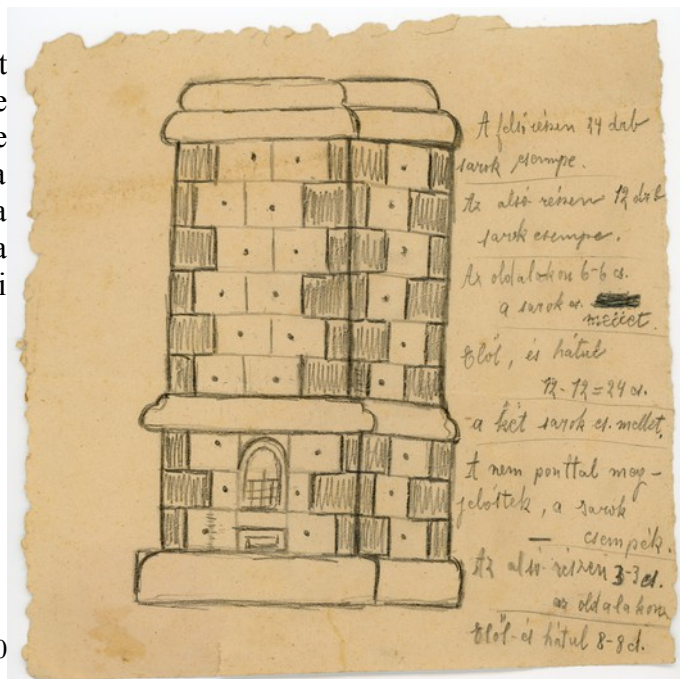 t
e
e
a
a
a
i
0
A felső részen 24 drb
sarok csempe.
Az alsó részen 12 drb
sarok csempe.
Az oldalakon 6-6 cs.
a sarok cs.
mellet.
Elől, és hátul
12-12=24 cs.
a két sarok cs. mellet.
A nem ponttal meg-
jelöltek, a sarok
csempék.
Az alsó részen 3-3 cs.
az oldalakon
Elől-és hátul 8-8 cs.